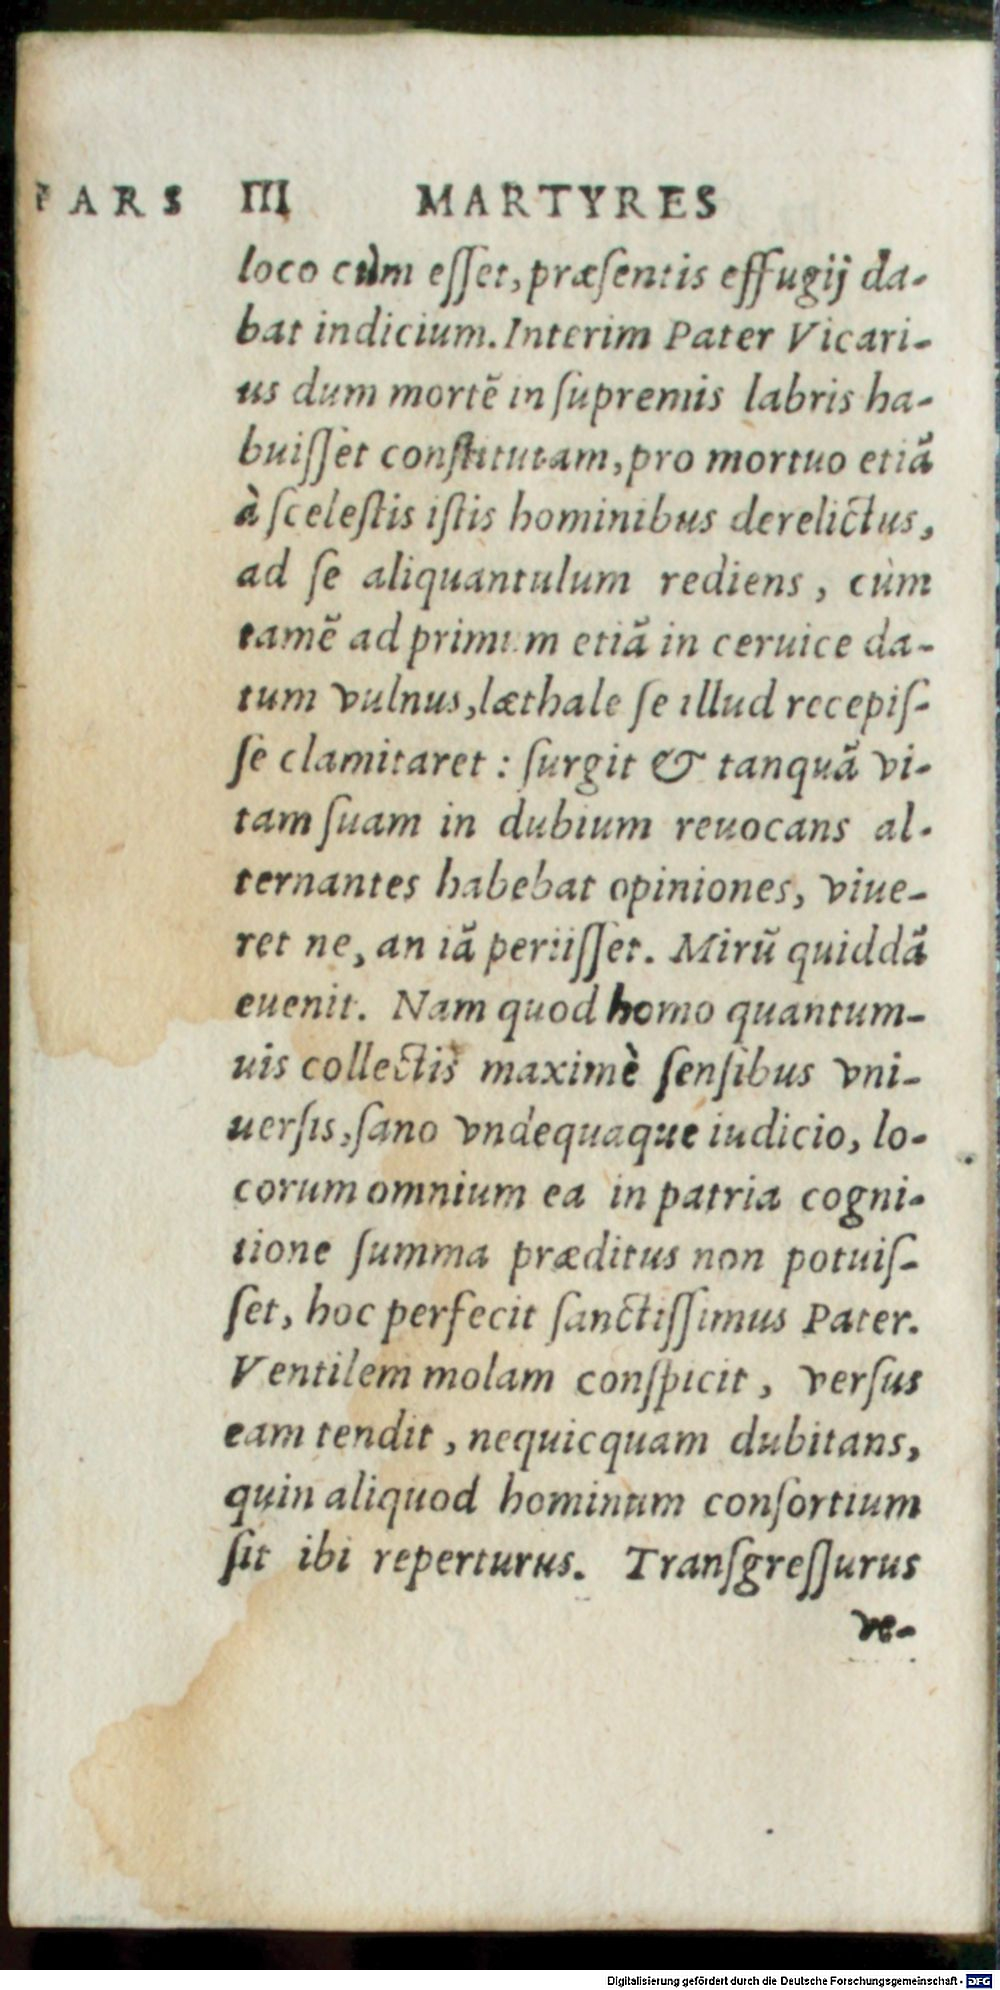 PARS III MARTYRES
loco cùm eſſet, præſentis effugij da-
bat indicium. Interim Pater Vicari-
us dum mortē in ſupremis labris ha-
buiſſet conſtitutam, pro mortuo etiā
à ſceleſtis iſtis hominibus derelictus,
ad ſe aliquantulum rediens, cùm
tamē ad primum etiā in ceruice da-
tum vulnus, læthale ſe illud recepiſ-
ſe clamitaret: ſurgit & tanquā vi-
tam ſuam in dubium reuocans al-
ternantes habebat opiniones, viue-
ret ne, an iā periiſſet. Mirū quiddā
euenit. Nam quod homo quantum-
uis collectis maximè ſenſibus vni-
uerſis, ſano vndequaque iudicio, lo-
corum omnium ea in patria cogni-
tione ſumma præditus non potuiſ-
ſet, hoc perfecit ſanctiſſimus Pater.
Ventilem molam conſpicit, verſus
eam tendit, nequicquam dubitans,
quin aliquod hominum conſortium
ſit ibi reperturus. Tranſgreſſurus
ve-
Digitalisierung gefördert durch die Deutsche Forschungsgemeinschaft - DFG